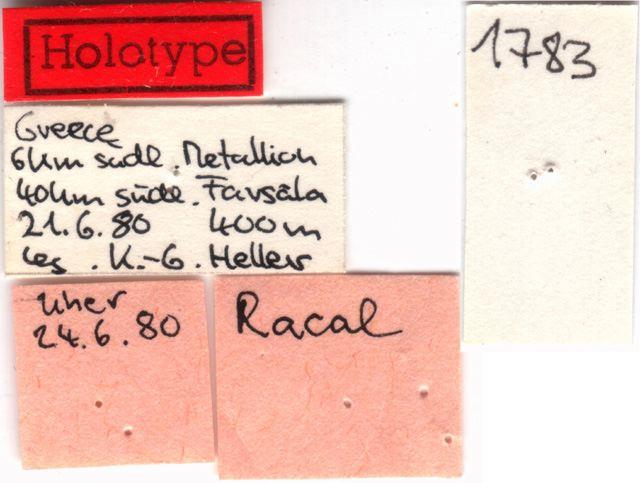 Holotype
1783
Greece
6km südl. Metallion
40km südl. Farsala
21.6.80 400m
leg. K.-G. Heller
24.6.80
Racal